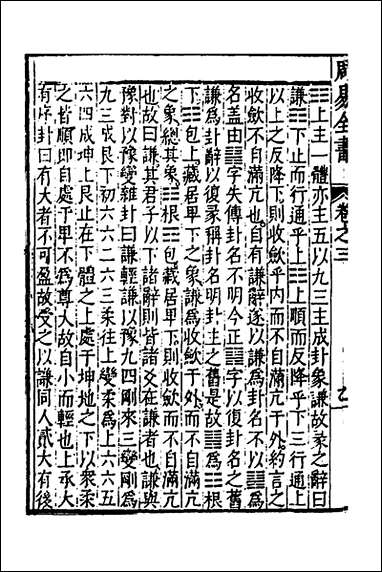 周易全書 卷之三
䷎上主一體亦主五以九三主成卦象謙故彖之辭曰
謙☶下止而行通乎上☷上順而反降乎下三行通上
以上之反降下則收歛乎内而不自滿亢于外約言之
收歛不自滿亢也自有謙辭遂以謙爲卦名不以䷎爲
名盖由䷎字失傳卦名不明今正䷎字以復卦名之舊
謙爲卦辭以復彖稱卦名明卦主之舊是故䷎爲☶根
下☷包上藏居卑下之象謙爲收歛于外而不自滿亢
之象總其象☶根☷包藏居卑下則收歛而不自滿亢
也故曰謙其君子以下諸辭則皆諸爻在謙者也謙與
豫對以豫變雜卦曰謙輕謙以豫九四剛來三變剛爲
九三成艮下初六六二六三柔往上變柔爲上六六五
六四成坤上艮止在下體之上處于坤地之下以衆柔
之皆順即自处于卑不爲尊大故自小而輕也上承大
有序卦曰有大者不可盈故受之以謙同人貳大有後